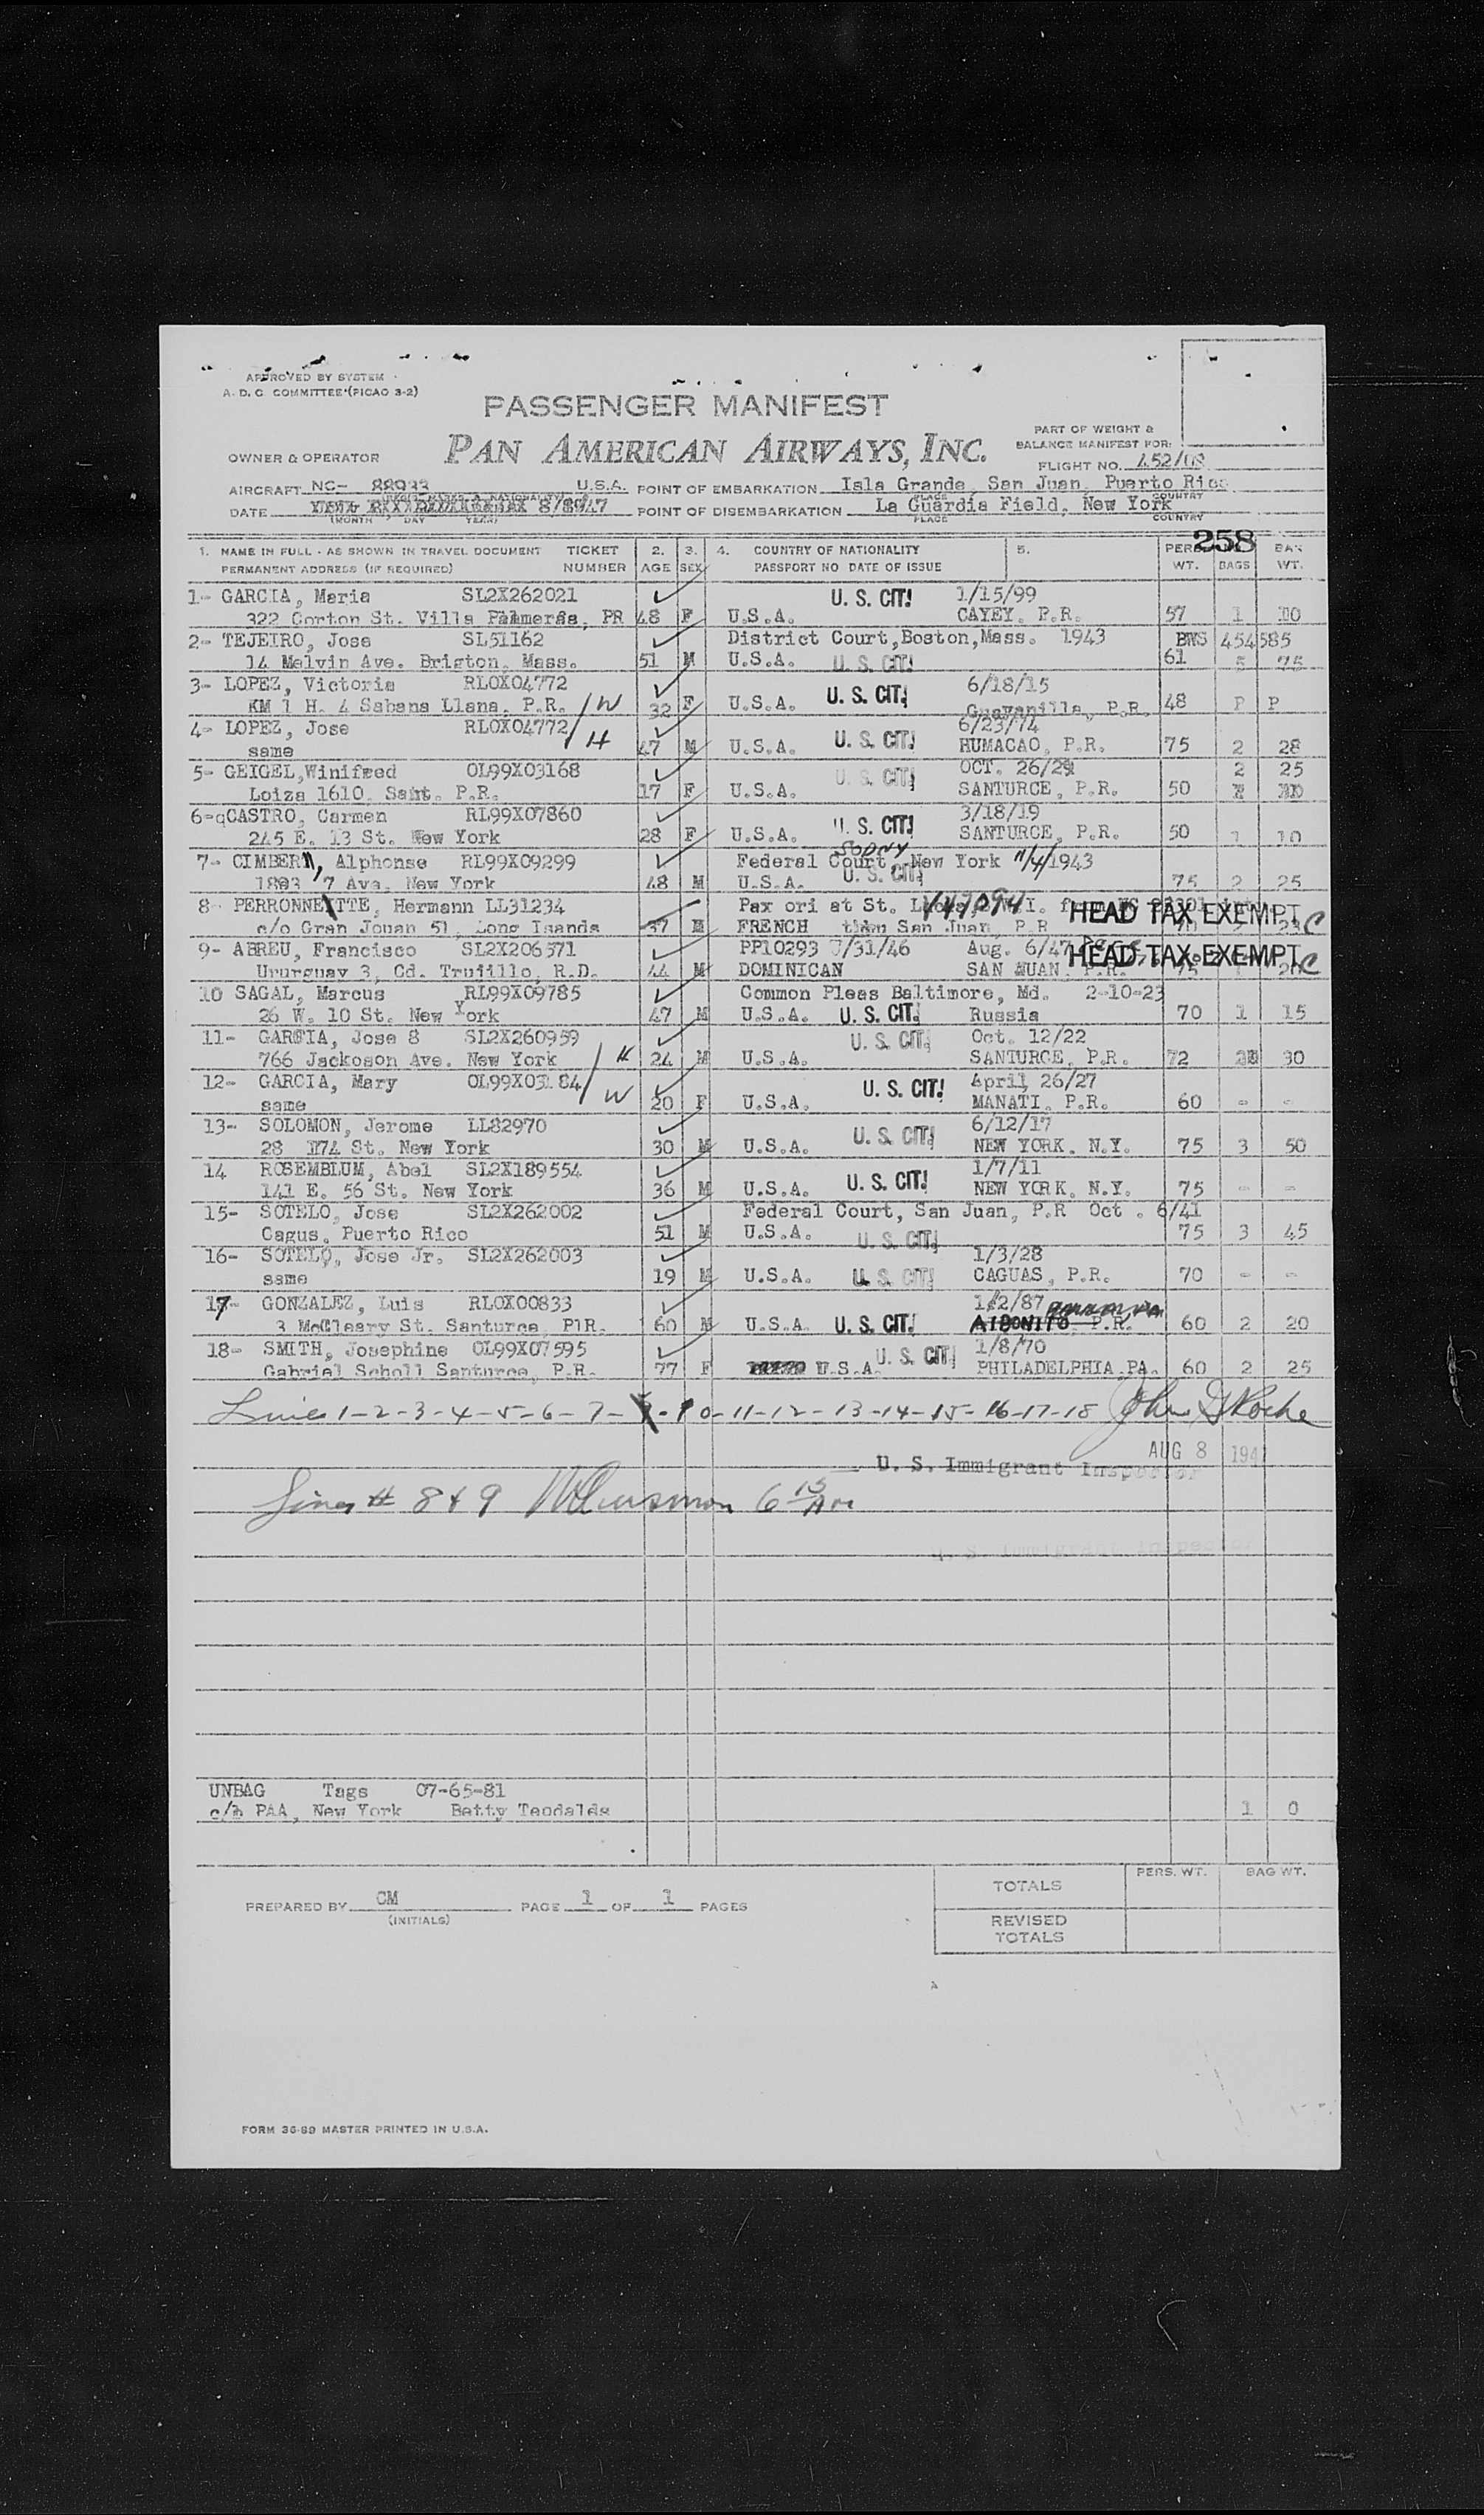 APPROVED BY SYSTEM
A. D. C. COMMITTEE (PICAO 3-2)
PASSENGER MANIFEST
PART OF WEIGHT &
BALANCE MANIFEST FOR:
OWNER & OPERATOR PAN AMERICAN AIRWAYS, INC.
FLIGHT NO. 452/08
AIRCRAFT NC- 88933 U.S.A. POINT OF EMBARKATION Isla Grande, San Juan, Puerto Rico
DATE 8/8/47 POINT OF DISEMBARKATION La Guardia Field, New York
(MONTH DAY YEAR) PLACE COUNTRY
258
1. NAME IN FULL - AS SHOWN IN TRAVEL DOCUMENT TICKET 2. 3. 4. COUNTRY OF NATIONALITY 5. PERS. BAG
PERMANENT ADDRESS (IF REQUIRED) NUMBER AGE SEX PASSPORT NO DATE OF ISSUE WT. BAGS WT.
1- GARCIA, Maria SL2X262021 U. S. CIT! 1/15/99
322 Corton St. Villa Palmeras, PR 48 F U.S.A. CAYEY, P.R. 57 1 10
2- TEJEIRO, Jose SL51162 District Court,Boston,Mass. 1943 BWS 454585
14 Melvin Ave. Brigton, Mass. 51 M U.S.A. U. S. CIT! 61
3- LOPEZ, Victoria RLOX04772 U. S. CIT! 6/18/15
KM 1 H. 4 Sabana Llana, P.R. W 32 F U.S.A. Guayanilla, P.R. 48 P P
4- LOPEZ, Jose RLOX04772 U. S. CIT! 6/23/74
same H 47 M U.S.A. HUMACAO, P.R. 75 2 28
5- GEIGEL,Winifred OL99X03168 U. S. CIT! OCT. 26/29 2 25
Loiza 1610, Sant. P.R. 17 F U.S.A. SANTURCE, P.R. 50
6-qCASTRO, Carmen RL99X07860 U. S. CIT! 3/18/19
245 E. 13 St. New York 28 F U.S.A. SANTURCE, P.R. 50 1 10
SODNY
7- CIMBERN, Alphonse RL99X09299 Federal Court, New York 11/4/1943
1893 7 Ava. New York 48 M U.S.A. U. S. CIT! 75 2 25
8- PERRONNETTE, Hermann LL31234 Pax ori at St. HEAD TAX EXEMPT
c/o Gran Jouan 51, Long Isands 37 M FRENCH thru San Juan, P.R C
9- ABREU, Francisco SL2X206371 PP10293 7/31/46 Aug. 6/47 HEAD TAX EXEMPT
Ururguay 3, Cd. Trujillo, R.D. 44 M DOMINICAN SAN JUAN, P.R. 75 C
10 SAGAL, Marcus RL99X09785 Common Pleas Baltimore, Md. 2-10-23
26 W. 10 St. New York 47 M U.S.A. U. S. CIT! Russia 70 1 15
11- GARCIA, Jose 8 SL2X260959 U. S. CIT! Oct. 12/22
766 Jackoson Ave. New York H 24 M U.S.A. SANTURCE, P.R. 72 30
12- GARCIA, Mary OL99X03184 U. S. CIT! April 26/27
same W 20 F U.S.A. MANATI, P.R. 60 - -
13- SOLOMON, Jerome LL82970 U. S. CIT! 6/12/17
28 174 St. New York 30 M U.S.A. NEW YORK, N.Y. 75 3 50
14 ROSEMBLUM, Abel SL2X189554 U. S. CIT! 1/7/11
141 E. 56 St. New York 36 M U.S.A. NEW YORK, N.Y. 75 - -
15- SOTELO, Jose SL2X262002 Federal Court, San Juan, P.R Oct . 6/41
Cagus, Puerto Rico 51 M U.S.A. U. S. CIT! 75 3 45
16- SOTELO, Jose Jr. SL2X262003 1/3/28
same 19 M U.S.A. U. S. CIT! CAGUAS, P.R. 70 - -
17- GONZALEZ, Luis RLOX00833 1/2/87
3 McCleary St. Santurce, P1R. 60 M U.S.A U. S. CIT! AIBONITO, P.R. 60 2 20
18- SMITH, Josephine OL99X07595 U. S. CIT! 1/8/70
Gabriel Scholl Santurce, P.R. 77 F U.S.A. PHILADELPHIA,PA. 60 2 25
Lines 1-2-3-4-5-6-7-10-11-12-13-14-15-16-17-18 John G Roche
AUG 8 194
U. S. Immigrant Inspector
Lines # 8 & 9 6 15 AM
U. S. Immigrant Inspector
UNBAG Tags 07-65-81
c/m PAA, New York Betty Teodalds 1 0
PERS. WT. BAG WT.
TOTALS
PREPARED BY CM PAGE 1 OF 1 PAGES
(INITIALS)
REVISED
TOTALS
FORM 36-89 MASTER PRINTED IN U.S.A.